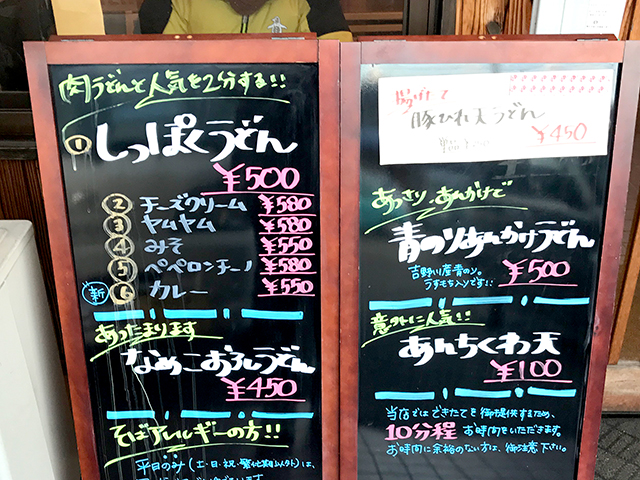 肉うどんと人気を2分する!!
① しっぽくうどん
¥500
② チーズクリーム ¥580
③ ヤムヤム ¥580
④ みそ ¥550
⑤ ペペロンチーノ ¥580
新 ⑥ カレー ¥550
あったまります
なめこおろしうどん
¥450
そばアレルギーの方!!
平日のみ(土・日・祝・繁忙期以外)は、
揚げたて
豚ひれ天うどん
¥450
あっさり、あんかけで
青のりあんかけうどん
吉野川産青のり。
うすもち入りです!!
¥500
意外に人気!!
あんちくわ天
¥100
当店ではできたてを御提供するため、
10分程お時間をいただきます。
お時間に余裕のない方は、御注意下さい。